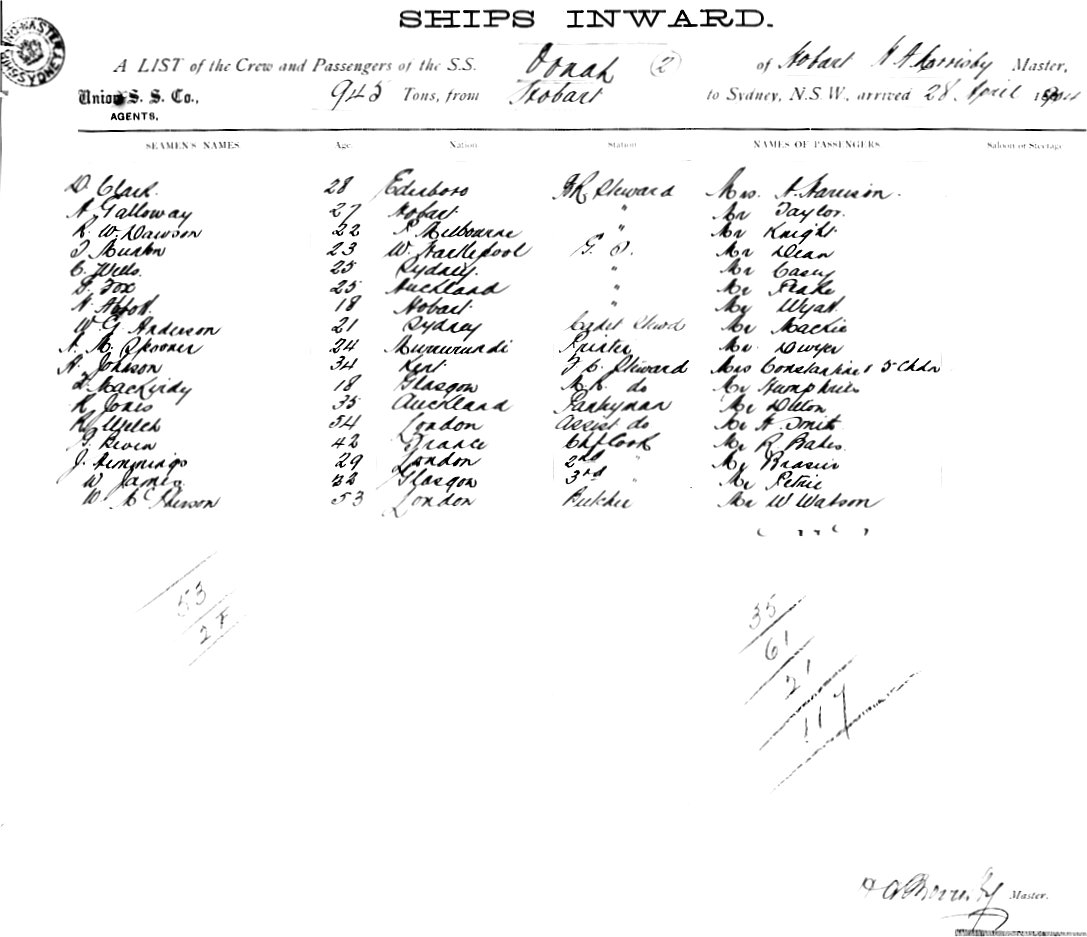 SHIPS INWARD.
A LIST of the Crew and Passengers of the S.S. Oonah (2) of Hobart Master,
Union S. S. Co., 945 Tons, from Hobart to Sydney, N.S.W., arrived 28 April
AGENTS,
SEAMEN'S NAMES Age Nation Station NAMES OF PASSENGERS Saloon or Steerage
D. Clark. 28 BR Steward Mrs. A. Harrison.
A Galloway 27 Hobart " Mr Taylor.
R. W. Dawson 22 P Melbourne " Mr Knight
23 W. Hartlepool G. S. Mr Dean
C. Wells. 25 Sydney. " Mr Casey
S. Fox 25 Auckland " Mr
A. Abbott. 18 Hobart " Mr Wyatt
W. G. Anderson 21 Sydney Cadet Stewd Mr Mackie
A. M. Spooner 24 Murrurundi Printer Mr. Dwyer
A. Johnson 34 Kent F. C. Steward Mrs Constantine & 5 Chdn
D. MacKirdy 18 Glasgow do Mr Humphries
R. Jones 35 Auckland Pantryman Mr Dillon
R. Welch 54 London Assist do Mr A. Smith
G. Beven 42 France Chf Cook Mr R
J. Hemmings 29 London 2nd " Mr Brasier
W James 32 Glasgow 3rd " Mr Petrie
W. McPherson 53 London Butcher Mr W Watson
53
2 F
35
61
21
117
Master.